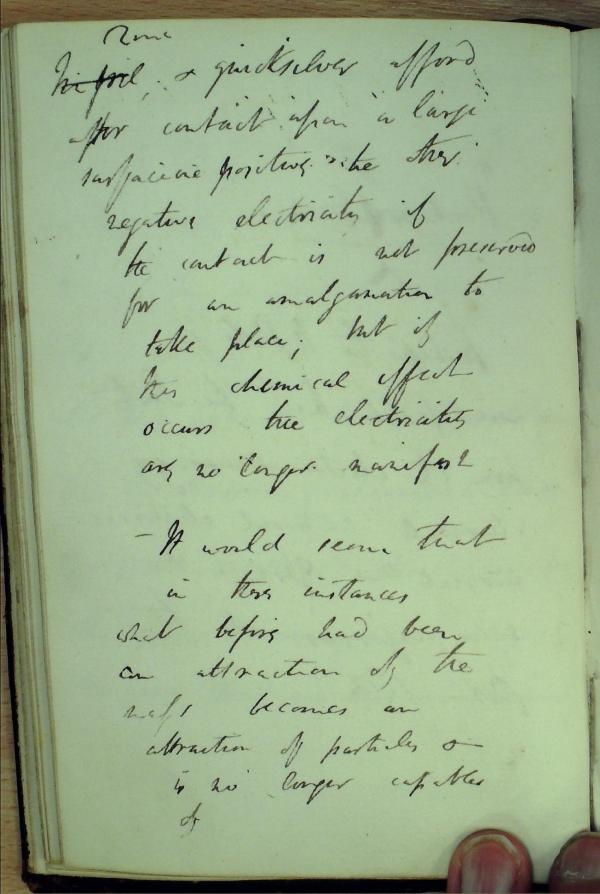 Zinc
& quicksilver afford
after contact upon a large
surface positive & the other
negative electricity if
the contact is not preserved
for an amalgamation to
take place; but if
this chemical effect
occurs the electricities
are no longer manifest
– It would seem that
in these instances
what before had been
an attraction of the
mass becomes an
attraction of particles &
is no longer capable
of